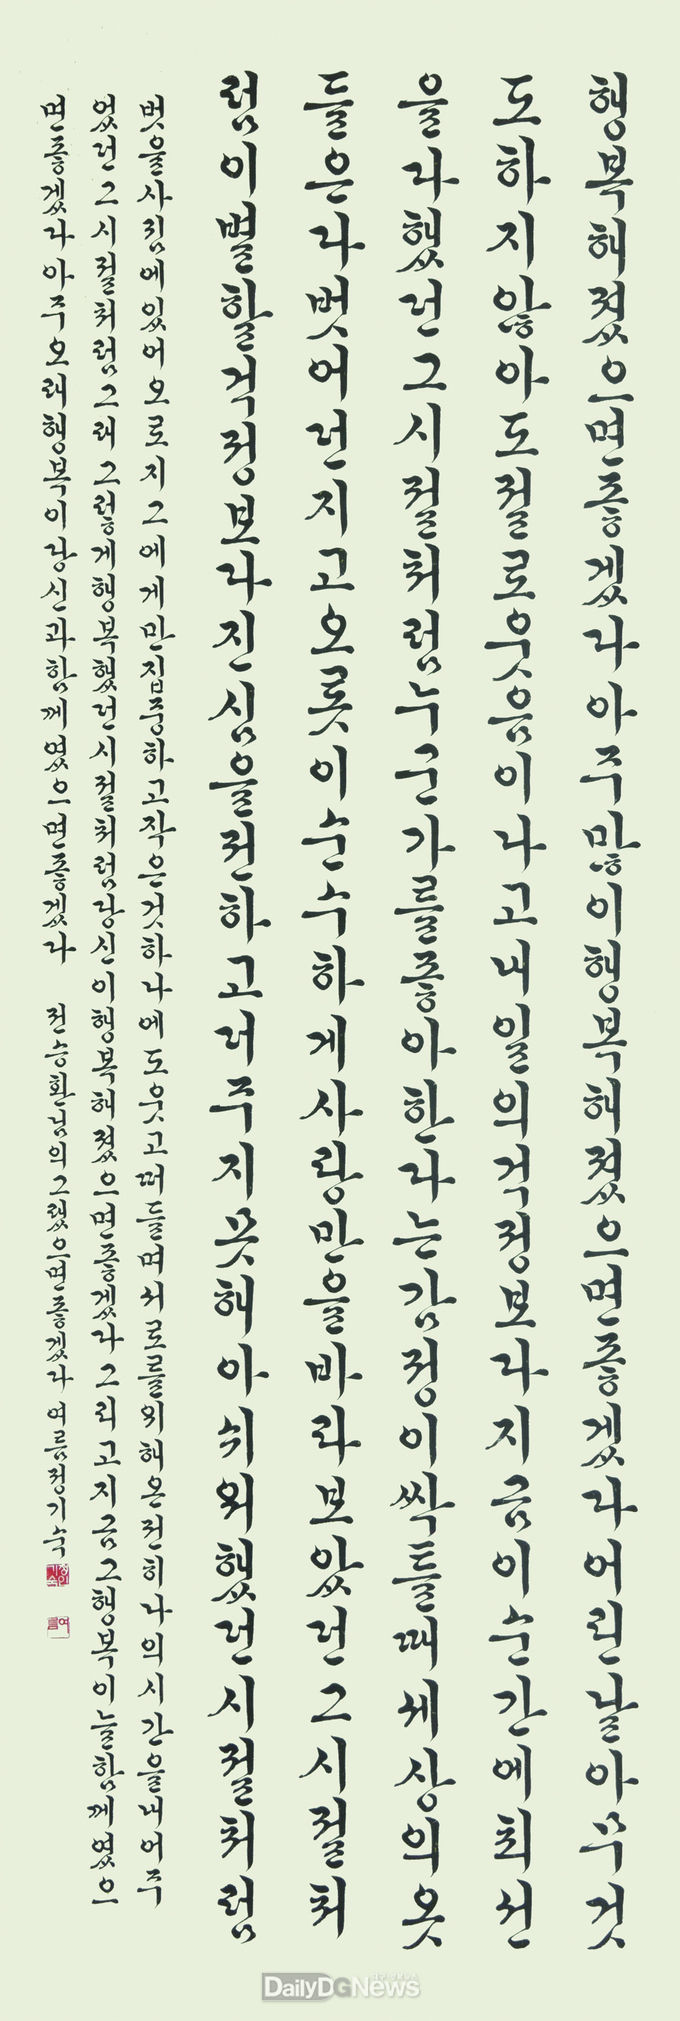 행복해졌으면좋겠다아주많이행복해졌으면좋겠다어린날아무것
도하지않아도절로웃음이나고내일의걱정보다지금이순간에최선
을다했던그시절처럼누군가를좋아한다는감정이싹틀때세상의옷
들은다벗어던지고오롯이순수하게사랑만을바라보았던그시절처
럼이별할걱정보다진심을전하고더주지못해아쉬워했던시절처럼
벗을사귐에있어오로지그에게만집중하고작은것하나에도웃고떠들며서로를위해온전히나의시간을내어주
었던그시절처럼그래그렇게행복했던시절처럼당신이행복해졌으면좋겠다그리고지금그행복이늘함께였으
면좋겠다아주오래행복이당신과함께였으면좋겠다 전승환님의그랬으면좋겠다 여름정기숙
여름
DailyDGNews